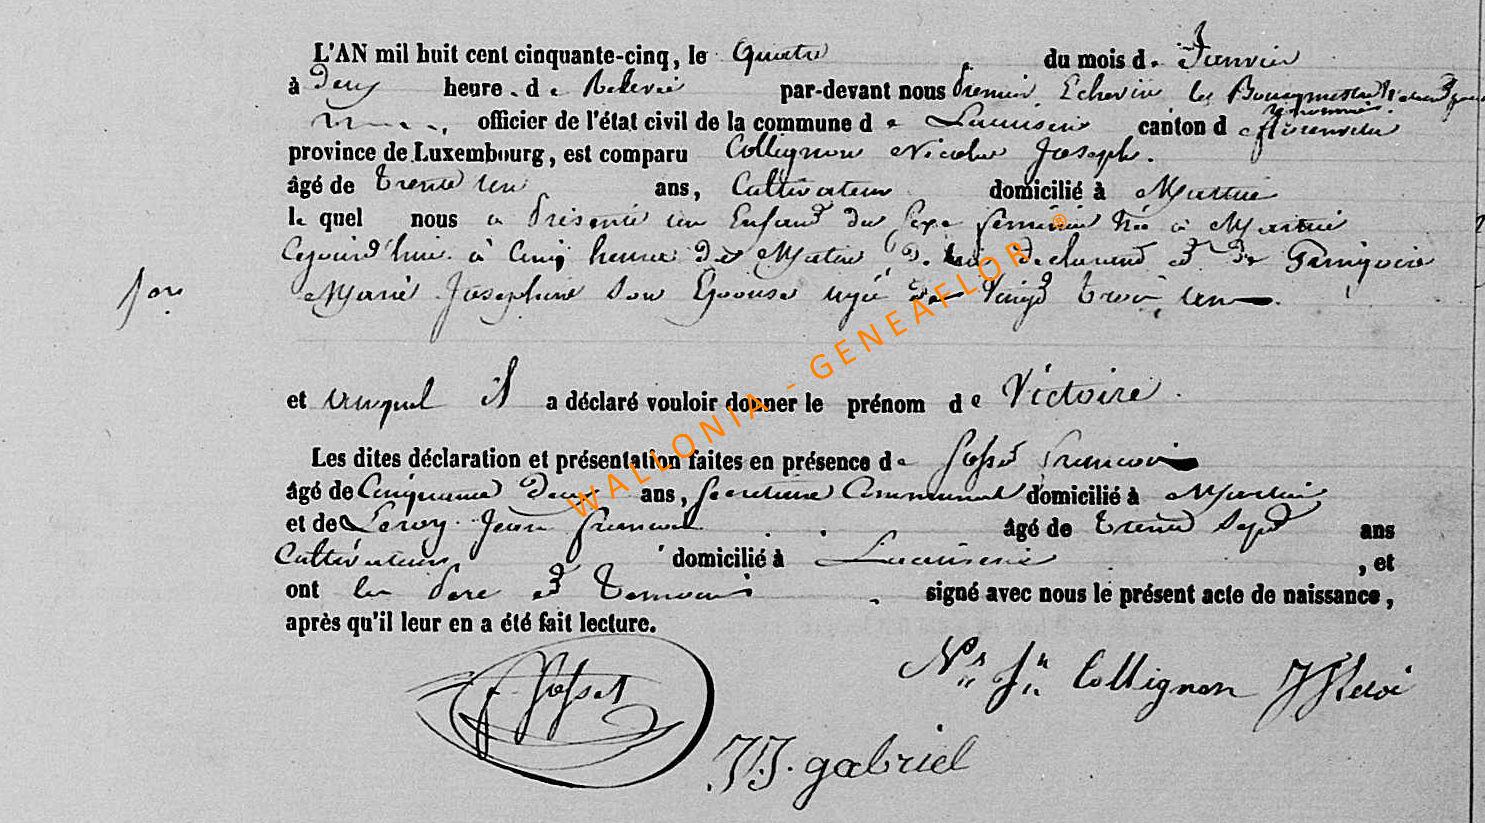 L'AN mil huit cent cinquante-cinq, le quatre du mois de Janvier
à deux heure. de Relevée par-devant nous Premier Echevin le Bourgmestre
officier de l'état civil de la commune de Lacuiserie canton de Florenville
province de Luxembourg, est comparu Collignon Nicolas Joseph.
âgé de trente un ans, Cultivateur domicilié à Martué
le quel nous a présenté un Enfant du sexe feminin née à Martué
Cejourd'hui à cinq heures du Matin, de lui declarant et de
Marie Josephine son Epouse agée de vingt trois ans.
et auquel il a déclaré vouloir donner le prénom de Victoire.
Les dites déclaration et présentation faites en présence de Josset Francois
âgé de Cinquante deux ans, secretaire Communal domicilié à Martué
et de Leroy Jean Francois âgé de trente sept ans
Cultivateur, domicilié à Lacuiserie, et
ont les Pere et Temoins signé avec nous le présent acte de naissance,
après qu'il leur en a été fait lecture.
F. Josset
Nas Jh Collignon JF Leroi
J J. gabriel
WALLONIA - GENEAFLOR ®